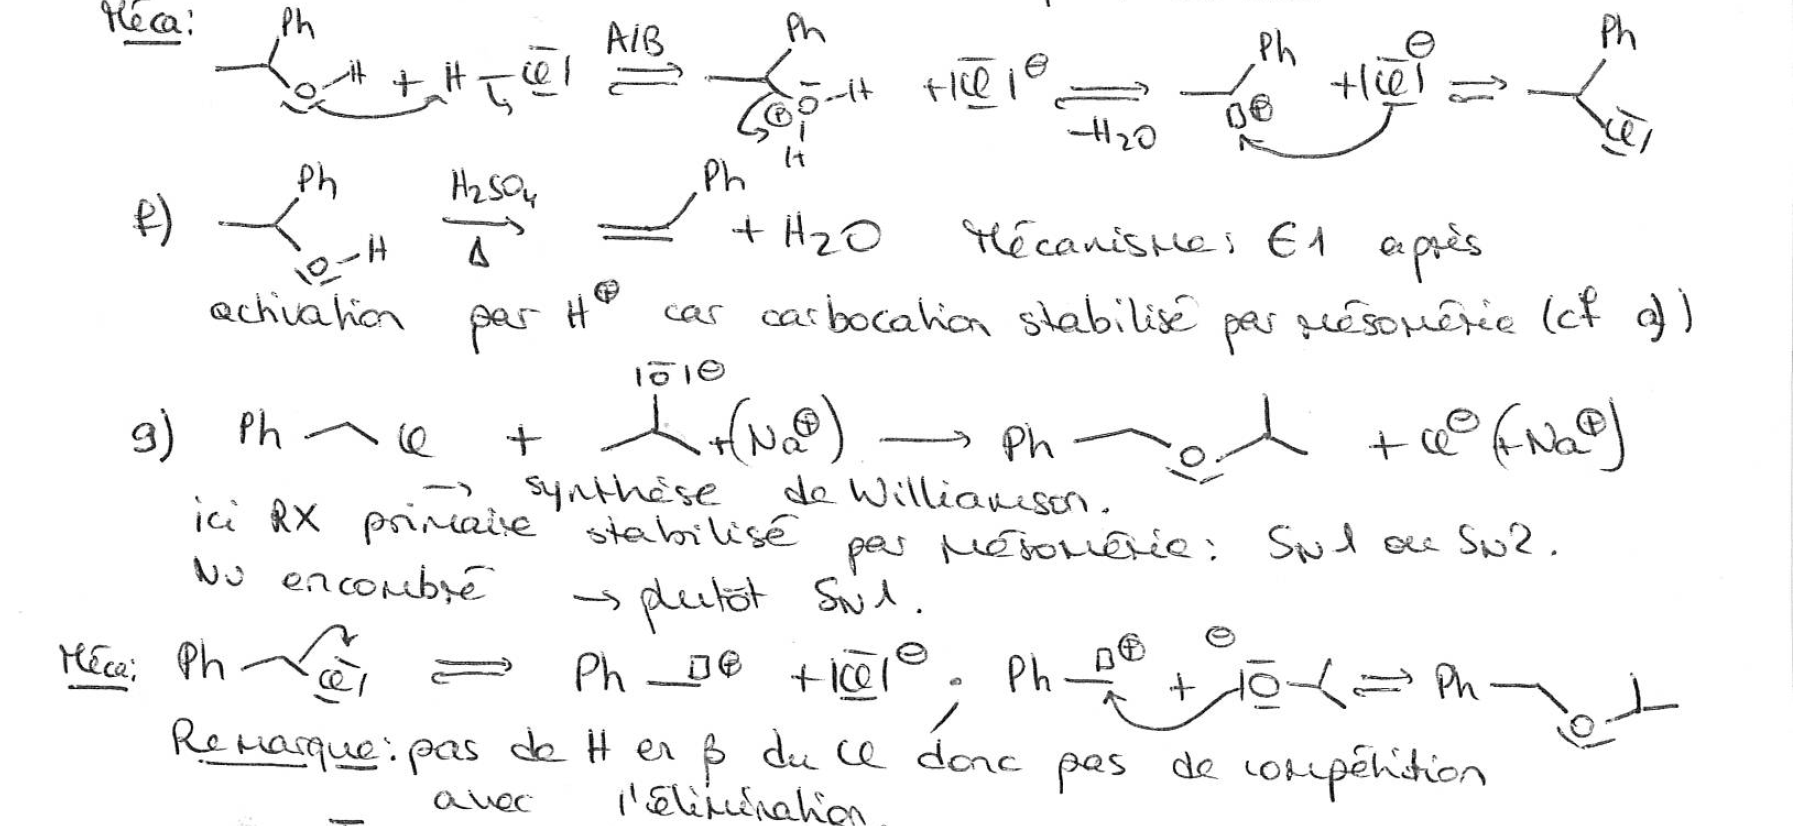 Méca:
Ph Ph Ph Ph
O-H + H-Cl A/B ⇌ ⊕O-H H + |Cl|⊖ ⇌ -H2O □⊕ + |Cl|⊖ ⇌ Cl|
f) Ph O-H H2SO4 → Δ Ph + H2O Mécanisme: E1 après
activation par H⊕ car carbocation stabilisé par mésomérie (cf a))
g) Ph Cl + |O|⊖ + (Na⊕) → Ph O + Cl⊖ (+Na⊕)
→ synthèse de Williamson.
ici RX primaire stabilisé par mésomérie: SN1 ou SN2.
Nu encombré → plutôt SN1.
Méca: Ph Cl| ⇌ Ph □⊕ + |Cl|⊖ ; Ph □⊕ + ⊖|O ⇌ Ph O
Remarque: pas de H en β du Cl donc pas de compétition
avec l'élimination.